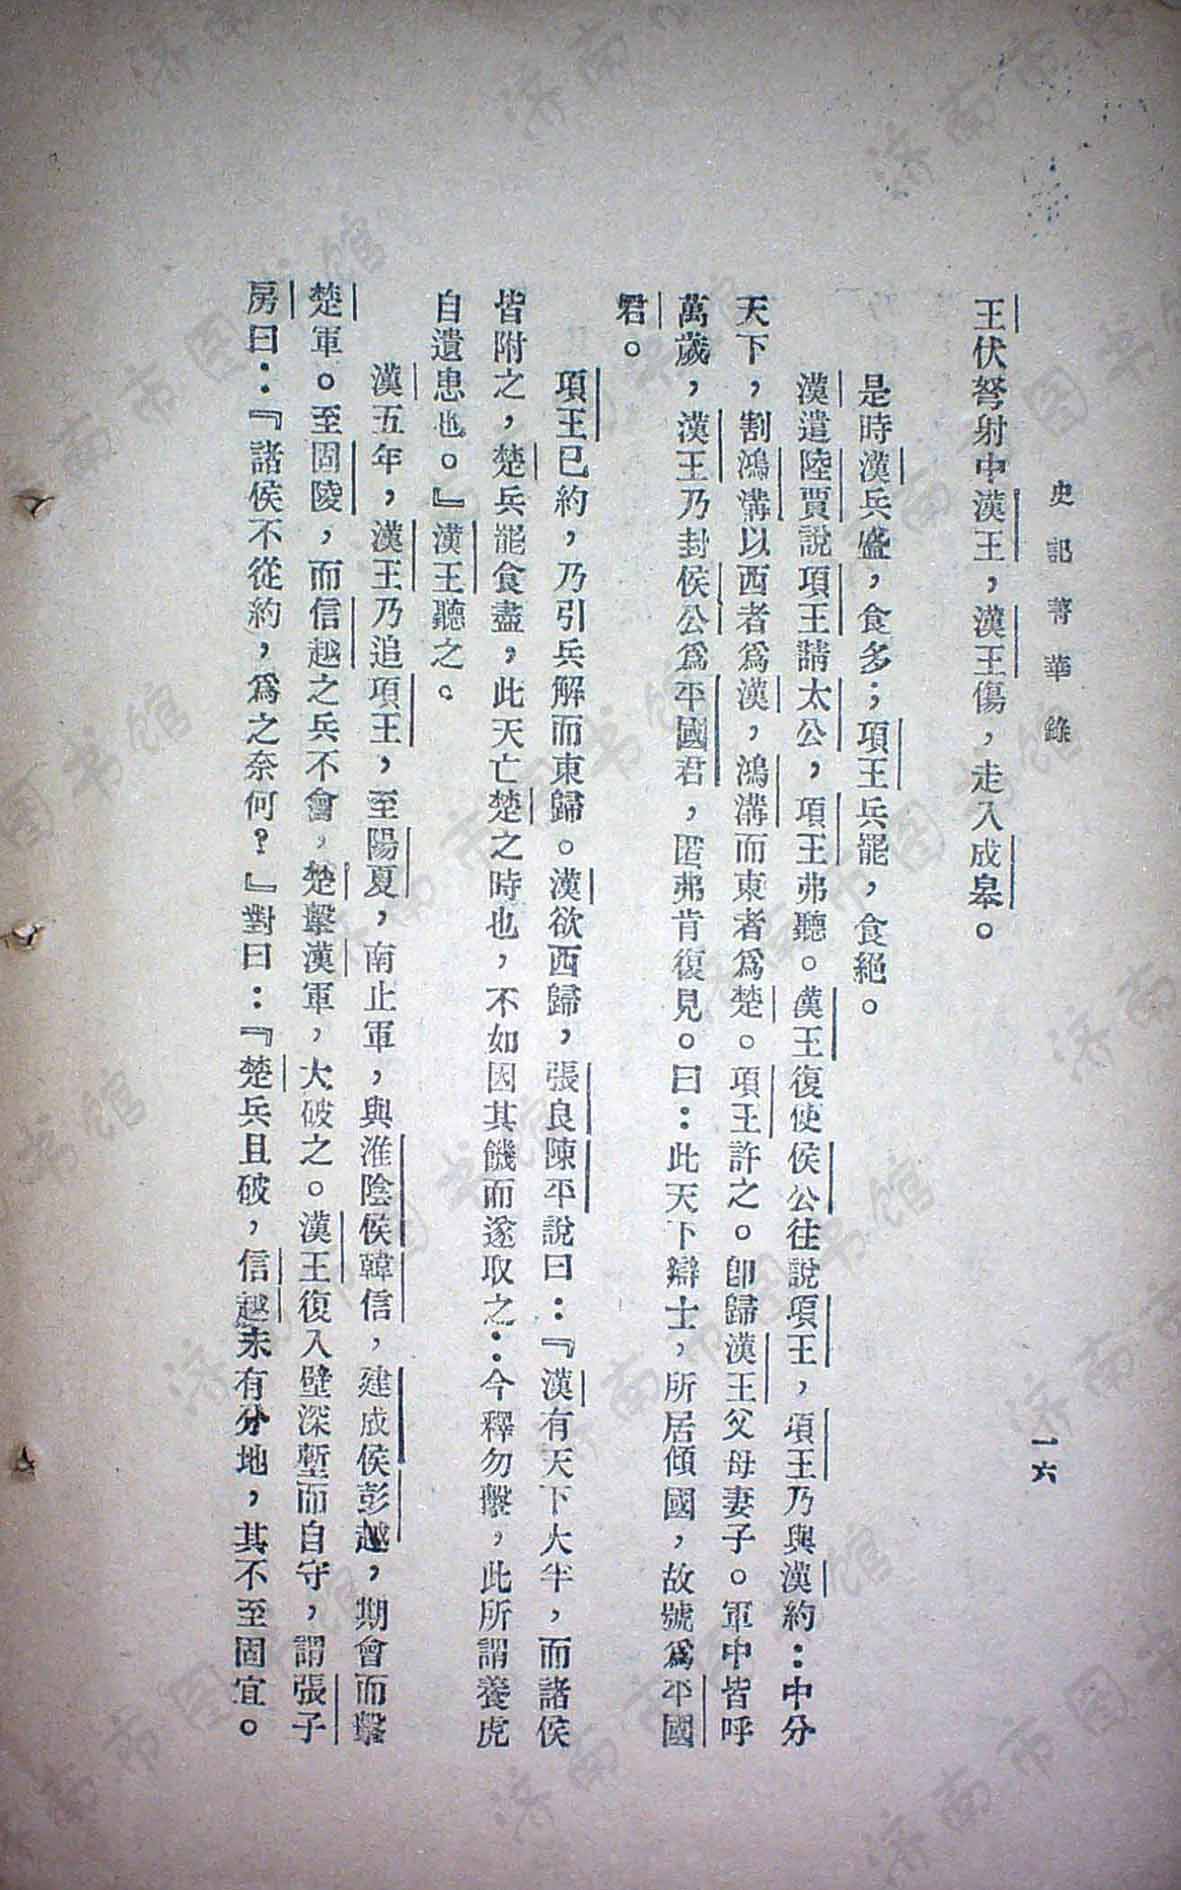 史記菁華錄
一六
王伏弩射中漢王，漢王傷，走入成皋。
是時漢兵盛，食多；項王兵罷，食絕。
漢遣陸賈說項王請太公，項王弗聽。漢王復使侯公往說項王，項王乃與漢約：中分
天下，割鴻溝以西者爲漢，鴻溝而東者爲楚。項王許之。卽歸漢王父母妻子。軍中皆呼
萬歲，漢王乃封侯公爲平國君，匿弗肯復見。曰：此天下辯士，所居傾國，故號爲平國
君。
項王已約，乃引兵解而東歸。漢欲西歸，張良陳平說曰：『漢有天下大半，而諸侯
皆附之，楚兵罷食盡，此天亡楚之時也，不如因其饑而遂取之：今釋勿擊，此所謂養虎
自遺患也。』漢王聽之。
漢五年，漢王乃追項王，至陽夏，南止軍，與淮陰侯韓信，建成侯彭越，期會而擊
楚軍。至固陵，而信越之兵不會，楚擊漢軍，大破之。漢王復入壁深塹而自守，謂張子
房曰：『諸侯不從約，爲之奈何？』對曰：『楚兵且破，信越未有分地，其不至固宜。
济南市图书馆